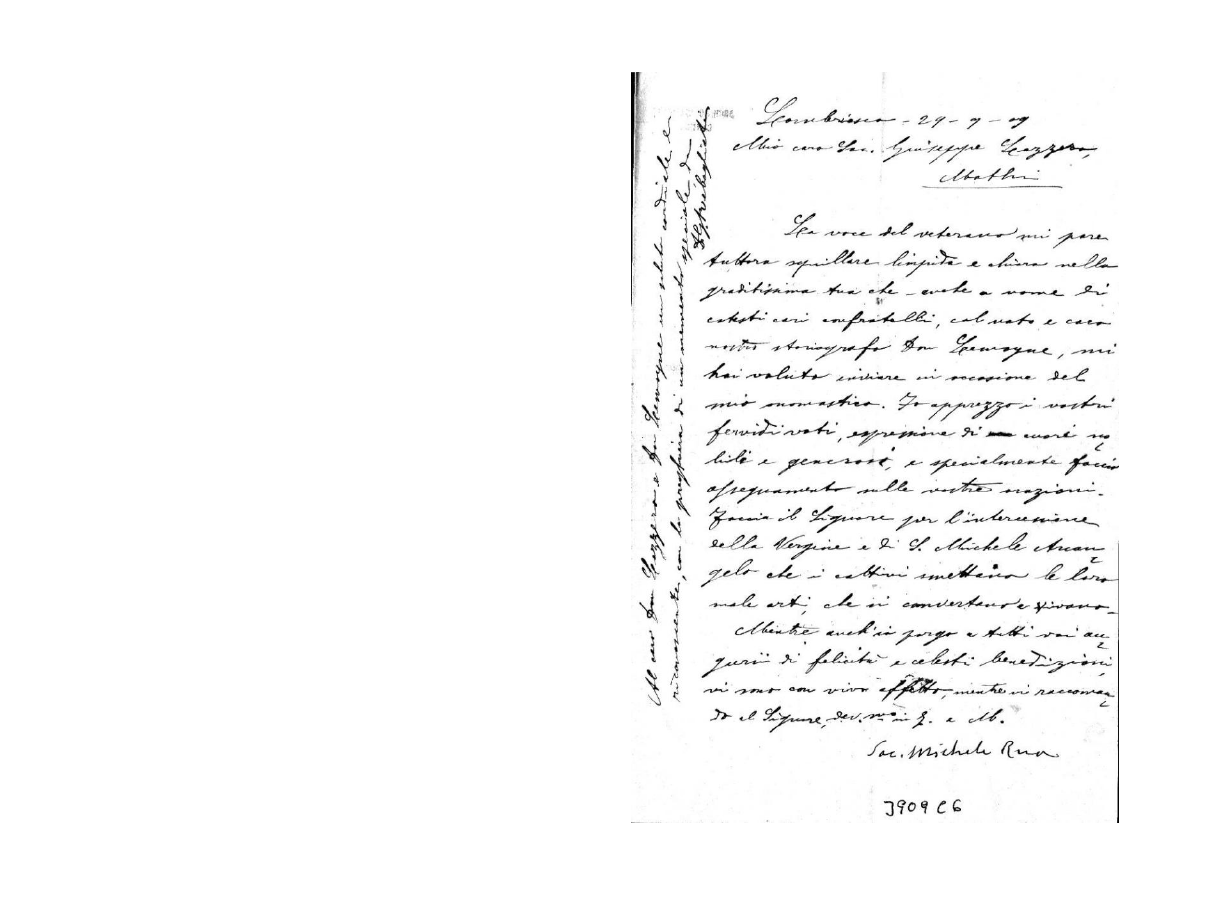 Lombriasco - 29 - 9 - 09
Mio caro Sac. Giuseppe Lazzero,
Mathi
La voce del veterano mi pare
tuttora squillare limpida e chiara nella
graditissima tua che - anche a nome di
cotesti cari confratelli, col noto e caro
nostro storiografo Don Lemoyne, mi
hai voluto inviare in occasione del
mio onomastico. Io apprezzo i vostri
fervidi voti, espressione di cuori no
bili e generosi, e specialmente faccio
assegnamento sulle vostre orazioni.
Faccia il Signore per l'intercessione
della Vergine e di S. Michele Arcan
gelo che i cattivi smettano le loro
male arti, che si convertano e vivano.
Mentre anch'io porgo a tutti voi au
gurii di felicità e celesti benedizioni,
vi sono con vivo affetto, mentre vi raccoman
do al Signore, dev.mo in G. e M.
Sac. Michele Rua
3909 C6
Al caro Don Lazzero e Don Lemoyne un saluto cordiale e
riconoscente, con la preghiera di un memento speciale da